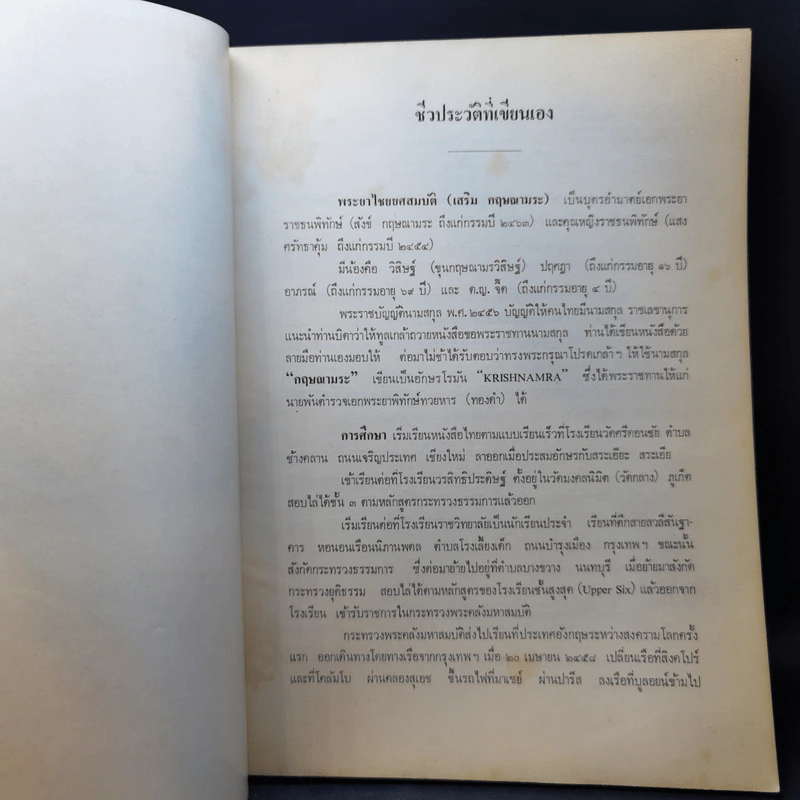 ชีวประวัติที่เขียนเอง
พระยาไชยยศสมบัติ (เสริม กฤษณามระ) เป็นบุตรอำมาตย์เอกพระยา
ราชธนพิทักษ์ (สังข์ กฤษณามระ ถึงแก่กรรมปี ๒๔๖๓) และคุณหญิงราชธนพิทักษ์ (แสง
ศรัทธาคุ้ม ถึงแก่กรรมปี ๒๔๕๔)
มีน้องคือ วิสิษฐ์ (ขุนกฤษณามรวิสิษฐ์) ปฤศฎา (ถึงแก่กรรมอายุ ๑๖ ปี)
อาภรณ์ (ถึงแก่กรรมอายุ ๖๙ ปี) และ ด.ญ. จี๊ด (ถึงแก่กรรมอายุ ๔ ปี)
พระราชบัญญัตินามสกุล พ.ศ. ๒๔๕๖ บัญญัติให้คนไทยมีนามสกุล ราชเลขานุการ
แนะนำท่านบิดาว่าให้ทูลเกล้าถวายหนังสือขอพระราชทานนามสกุล ท่านได้เขียนหนังสือด้วย
ลายมือท่านเองมอบให้ ต่อมาไม่ช้าได้รับตอบว่าทรงพระกรุณาโปรดเกล้าฯ ให้ใช้นามสกุล
“กฤษณามระ” เขียนเป็นอักษรโรมัน “KRISHNAMRA” ซึ่งได้พระราชทานให้แก่
นายพันตำรวจเอกพระยาพิทักษ์ทวยหาร (ทองดำ) ได้
การศึกษา เริ่มเรียนหนังสือไทยตามแบบเรียนเร็วที่โรงเรียนวัดศรีดอนชัย ตำบล
ช้างคลาน ถนนเจริญประเทศ เชียงใหม่ ลาออกเมื่อประสมอักษรกับสระเอียะ สระเอีย
เข้าเรียนต่อที่โรงเรียนวรสิทธิประดิษฐ์ ตั้งอยู่ในวัดมงคลนิมิต (วัดกลาง) ภูเก็ต
สอบไล่ได้ชั้น ๓ ตามหลักสูตรกระทรวงธรรมการแล้วออก
เริ่มเรียนต่อที่โรงเรียนราชวิทยาลัยเป็นนักเรียนประจำ เรียนที่ตึกสายสวลีสันฐา-
คาร หอนอนเรือนนิภานพดล ตำบลโรงเลี้ยงเด็ก ถนนบำรุงเมือง กรุงเทพฯ ขณะนั้น
สังกัดกระทรวงธรรมการ ซึ่งต่อมาย้ายไปอยู่ที่ตำบลบางขวาง นนทบุรี เมื่อย้ายมาสังกัด
กระทรวงยุติธรรม สอบไล่ได้ตามหลักสูตรของโรงเรียนชั้นสูงสุด (Upper Six) แล้วออกจาก
โรงเรียน เข้ารับราชการในกระทรวงพระคลังมหาสมบัติ
กระทรวงพระคลังมหาสมบัติส่งไปเรียนที่ประเทศอังกฤษระหว่างสงครามโลกครั้ง
แรก ออกเดินทางโดยทางเรือจากกรุงเทพฯ เมื่อ ๒๐ เมษายน ๒๔๕๘ เปลี่ยนเรือที่สิงคโปร์
และที่โคลัมโบ ผ่านคลองสุเอช ขึ้นรถไฟที่มาเซย์ ผ่านปารีส ลงเรือที่บูลอยน์ข้ามไป